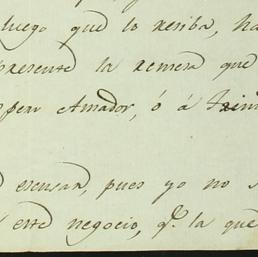 luego que lo reciba, ha
presente la remesa que
Amador, ó á
escusar, pues yo no s
este negocio, qe. la que